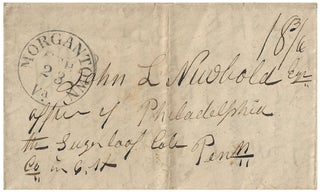 MORGANTOWN
23
Va.
18¾
John L Newbold Esqr
office of Philadelphia
the Sugarloaf Cole Penn
Co in C. H